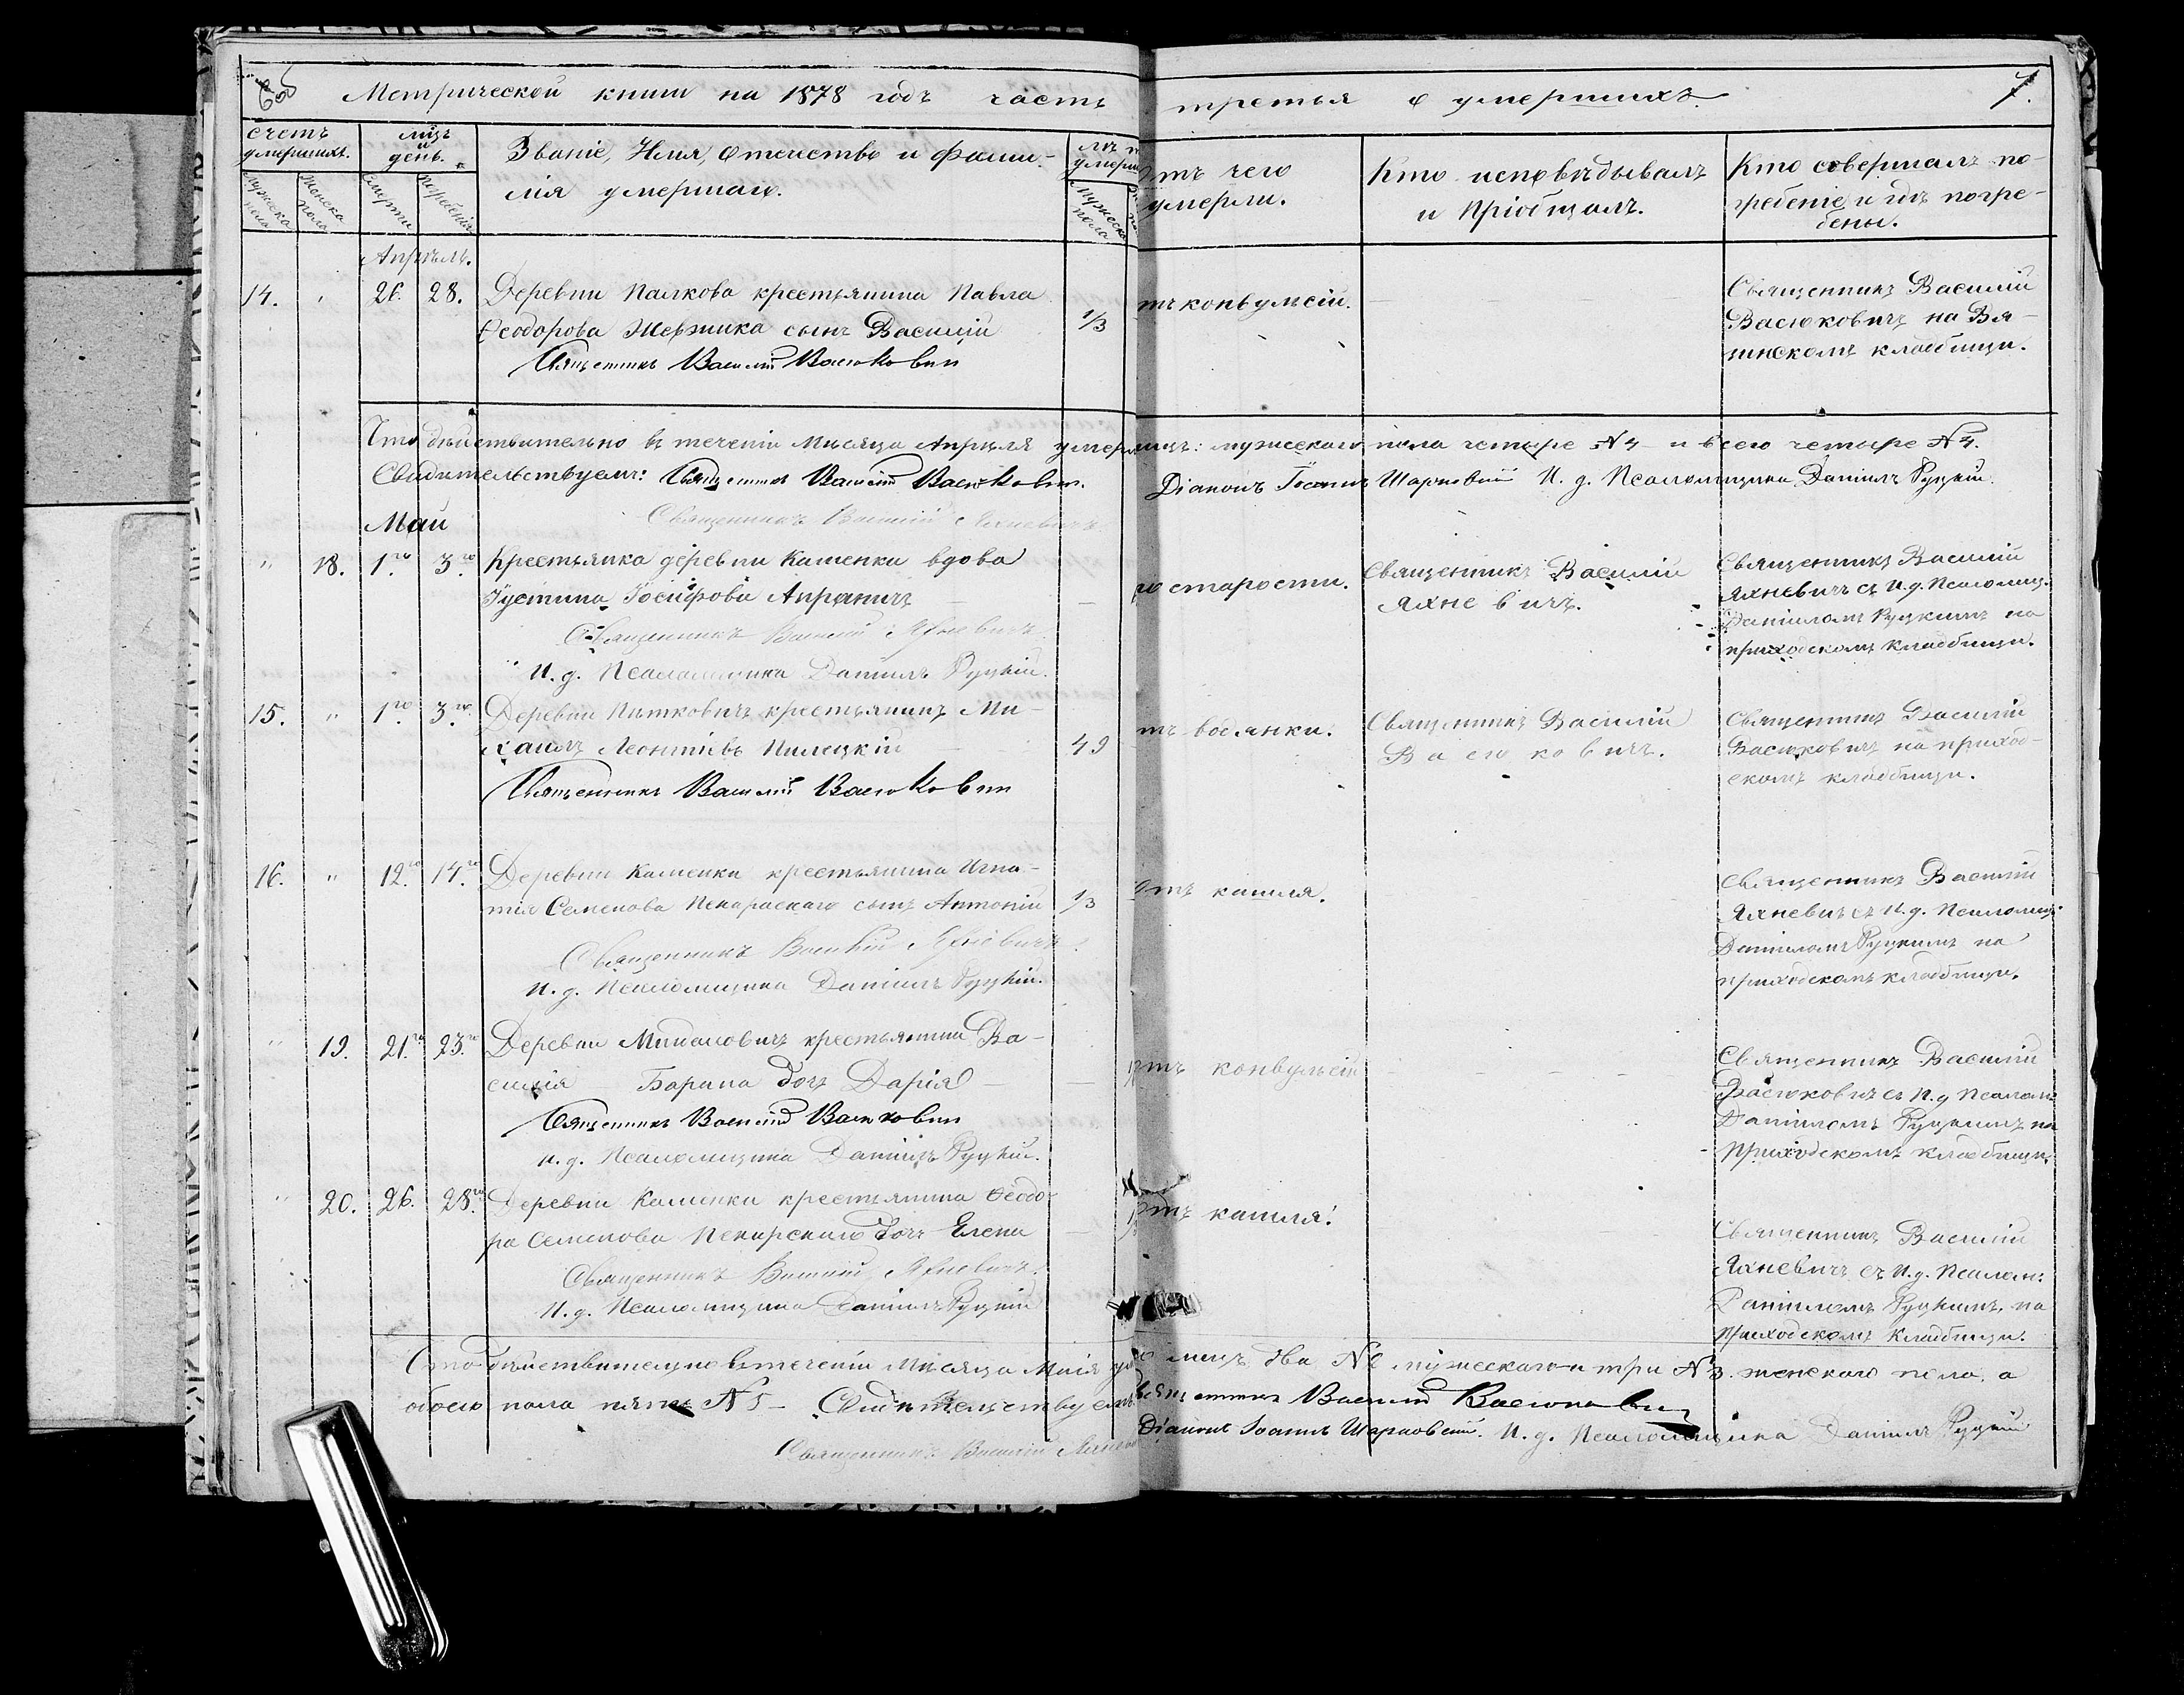 6 об
Метрической книги на 1878 годъ часть третья о умершихъ.
7.
Счетъ умершихъ.
Мужеска пола
Женска пола
Мцъ и день.
Смерти
Погребенія
Званіе, Имя, Отчество и фами-
лія умершаго.
Мужеска пола
Отъ чего
умерли.
Кто исповѣдывалъ
и пріобщалъ.
Кто совершалъ по-
гребеніе и гдѣ погре-
бены.
Апрѣль.
14. 26. 28. Деревни Палкова крестьянина Павла
Ѳеодорова сынъ Василій
Священникъ Василій Васюковичъ
1/3
отъ конвульсій.
Священникъ Василій
Васюковичъ на
кладбищи.
Что дѣйствительно въ теченіи Мѣсяца Апрѣля умерлицъ: мужескаго пола четыре №4 и всего четыре №4.
Свидѣтельствуемъ: Священникъ Василій Васюковичъ. Діаконъ Іоаннъ Шарковскій И. д. Псаломщика Даніилъ Руцкій.
Священникъ Василій Яхневичъ
Май
" 18. 1го 3го Крестьянка деревни Каменки вдова
Іустина Іосифова
Священникъ Василій Яхневичъ
И. д. Псаломщика Даніилъ Руцкій.
по старости.
Священникъ Василій
Яхневичъ.
Священникъ Василій
Яхневичъ съ И. д. Псаломщ.
Даніиломъ Руцкимъ на
приходскомъ кладбищи.
15. " 1го 3го Деревни крестьянинъ Ми-
хаилъ Леонтіевъ Пилецкій
Священникъ Василій Васюковичъ
49
отъ водянки.
Священникъ Василій
Васюковичъ.
Священникъ Василій
Васюковичъ на приход-
скомъ кладбищи.
16. " 12го 14го Деревни Каменки крестьянина Игна-
тія Семенова Пекарскаго сынъ Антоній
Священникъ Василій Яхневичъ.
И. д. Псаломщика Даніилъ Руцкій.
1/3
Отъ кашля.
Священникъ Василій
Яхневичъ съ И. д. Псаломщ.
Даніиломъ Руцкимъ на
приходскомъ кладбищи.
" 19. 21го 23го Деревни крестьянина Ва-
силія Барана дочь Дарія
Священникъ Василій Васюковичъ
И. д. Псаломщика Даніилъ Руцкій.
Отъ конвульсій
Священникъ Василій
Васюковичъ съ И. д. Псалом.
Даніиломъ Руцкимъ на
приходскомъ кладбищи.
" 20. 26. 28го Деревни Каменки крестьянина Ѳеодо-
ра Семенова Пекарскаго дочь Елена
Священникъ Василій Яхневичъ.
И. д. Псаломщика Даніилъ Руцкій
Отъ кашля.
Священникъ Василій
Яхневичъ съ И. д. Псалом:
Даніиломъ Руцкимъ, на
приходскомъ кладбищи.
Что дѣйствительно въ теченіи Мѣсяца Маія два № 2 мужескаго и три № 3. женскаго пола, а
обоего пола пять № 5 – Свидѣтельствуемъ: Священникъ Василій Васюковичъ
Діаконъ Іоаннъ Шарковскій. И. д. Псаломщика Даніилъ Руцкій
Священникъ Василій